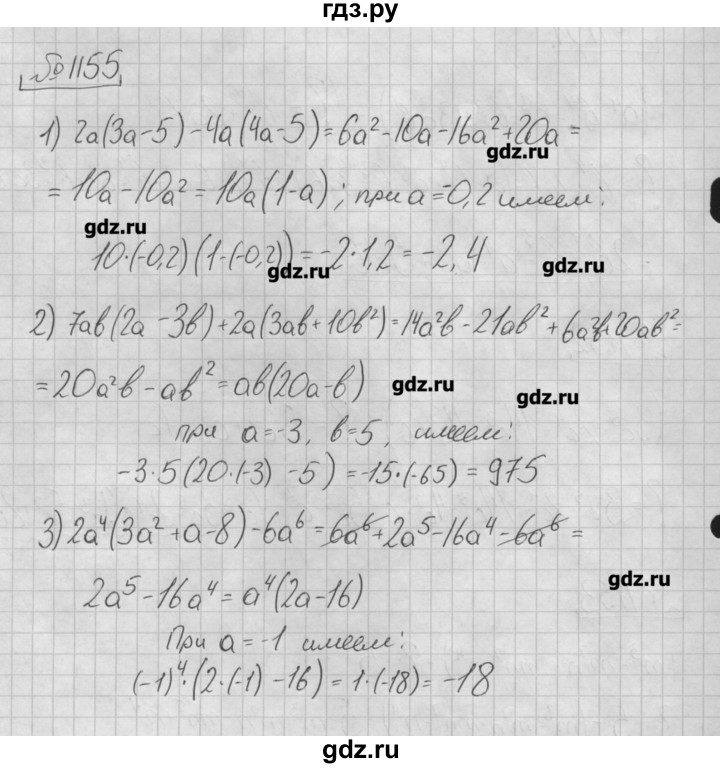 гдз.ру
№1155
1) 2a(3a-5)-4a(4a-5)=6a²-10a-16a²+20a=
gdz.ru
=10a-10a²=10a(1-a); при a=-0,2 имеем:
gdz.ru
10·(-0,2)(1-(-0,2))=-2·1,2=-2,4
gdz.ru gdz.ru
2) 7ab(2a-3b)+2a(3ab+10b²)=14a²b-21ab²+6a²b+20ab²=
=20a²b-ab²=ab(20a-b)
gdz.ru gdz.ru
при a=-3, b=5, имеем:
-3·5(20·(-3)-5)=-15·(-65)=975
3) 2a⁴(3a²+a-8)-6a⁶=6a⁶+2a⁵-16a⁴-6a⁶=
gdz.ru
2a⁵-16a⁴=a⁴(2a-16)
При a=-1 имеем:
(-1)⁴·(2·(-1)-16)=1·(-18)=-18
gdz.ru